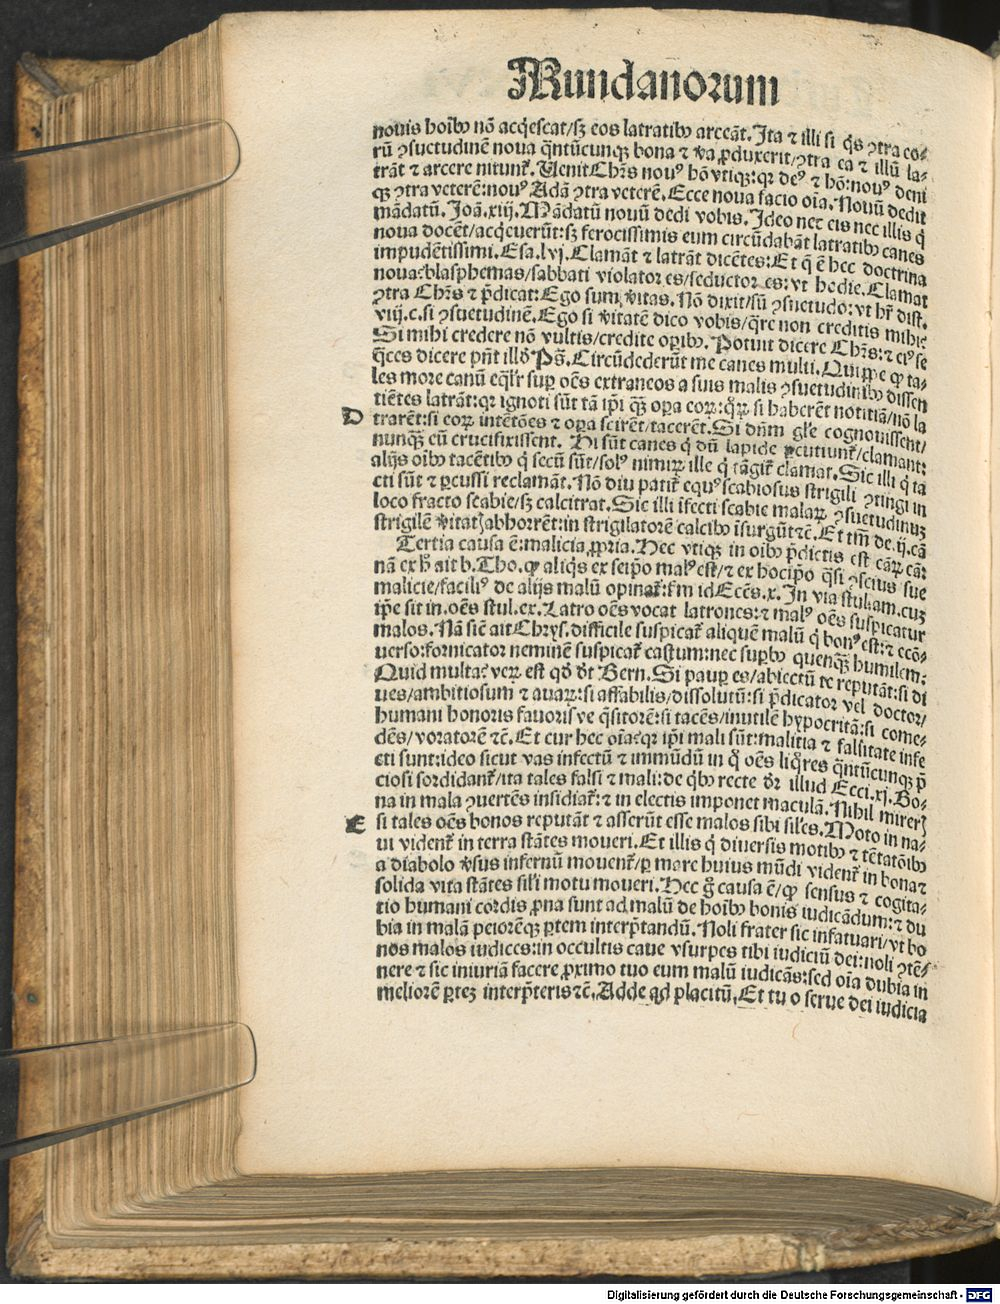 Mundanorum
nouis hoîbꝰ nõ acq̃escat/sꝫ eos latratibꝰ arceãt. Ita ⁊ illi si q̃s ꝯtra co⸗
rũ ꝯsuetudinẽ noua q̃ntũcunqꝫ bona ⁊ v̾a ꝓduxerit/ꝯtra ea ⁊ illũ la⸗
trãt ⁊ arcere nitunt᷑. Uenit Chr̃s nouꝰ hõ vtiqꝫ: qꝛ deꝰ ⁊ hõ: nouꝰ deni
qꝫ ꝯtra veterẽ: nouꝰ Adã ꝯtra veterẽ. Ecce noua facio oĩa. Nouũ dedit
mãdatũ. Joã. xiij. Mãdatũ nouũ dedi vobis. Ideo nec eis nec illis q̃
noua docẽt/acq̃euerũt: sꝫ ferocissimis eum circũdabãt latratibꝰ canes
impudẽtissimi. Esa. lvj. Clamãt ⁊ latrãt dicẽtes: Et q̃ ẽ hec doctrina
noua: blasphemas/sabbati violatores/seductores: vt hodie. Clamat
ꝯtra Chr̃s ⁊ p̃dicat: Ego sum v̾itas. Nõ dixit/sũ ꝯsuetudo: vt hr̃ dist.
viij. c. si ꝯsuetudinẽ. Ego si v̾itatẽ dico vobis/q̃re non creditis mihi:
Si mihi credere nõ vultis/credite oꝑibꝰ. Potuit dicere Chr̃s: ⁊ eiꝰ se
q̃ces dicere pñt illď Ps̃. Circũdederũt me canes multi. Quippe ꝙ ta⸗
les more canũ eq̃lr̃ sup oẽs extraneos a suis malis ꝯsuetudinibꝰ dissen
tiẽtes latrãt: qꝛ ignoti sũt tã ip̃i qꝫ̃ oꝑa eoꝝ: q̃ꝝ si haberẽt notitiã/nõ la
D trarẽt: si eoꝝ intẽtões ⁊ oꝑa scirẽt/tacerẽt. Si dñm gl̃e cognouissent/
nunqꝫ̃ eũ crucifixissent. Hi sũt canes q̃ dũ lapide ꝑcutiunt᷑/clamant:
alijs oĩbꝰ tacẽtibꝰ q̃ secũ sũt/solꝰ nimiꝝ ille q̃ tãgit᷑ clamat. Sic illi q̃ ta
cti sũt ⁊ ꝑcussi reclamãt. Nõ diu patit᷑ equꝰ scabiosus strigili ꝯtingi in
loco fracto scabie/sꝫ calcitrat. Sic illi ĩfecti scabie malaꝝ ꝯsuetudinuꝫ
strigilẽ v̾itatꝭ abhorrẽt: in strigilatorẽ calcibꝰ ĩsurgũt ⁊c̃. Et tm̃ de. ij. cã
Tertia causa ẽ: malicia ꝓpria. Hec vtiqꝫ in oĩbꝰ p̃dictis est caꝝ cã:
nã ex h̾ ait b. Tho. ꝙ aliq̃s ex seipo malꝰ est/⁊ ex hoc ip̃o q̃si ꝯscius sue
malicie/faciliꝰ de alijs malũ opinat᷑: s̃m id Ecc̃s. x. In via stul̃t am. cuꝫ
ip̃e sit in. oẽs stul. ex. Latro oẽs vocat latrones: ⁊ malꝰ oẽs suspicatur
malos. Nã sicẽ ait Chrys. difficile suspicat᷑ aliquẽ malũ q̃ bonꝰ est: ⁊ ecõ⸗
uerso: fornicator neminẽ suspicat᷑ castum: nec supbꝰ quenqꝫ̃ humilem:
Quid multa: veꝝ est qď ďt Bern. Si paup es/abiectũ te reputãt: si di
ues/ambitiosum ⁊ auaꝝ: si affabilis/dissolutũ: si p̃dicator vel doctor/
humani honoris fauorisve q̃sitorẽ: si tacẽs/inutilẽ hypocritã: si come⸗
dẽs/voratorẽ ⁊c̃. Et cur hec oĩa: qꝛ ip̃i mali sũt: malitia ⁊ falsitate infe
cti sunt: ideo sicut vas infectũ ⁊ immũdũ in q̃ oẽs liq̃res q̃ntũcunqꝫ p̃
ciosi sordidant᷑/ita tales falsi ⁊ mali: de q̃bꝰ recte dr̃ illud Ecci. xj. Bo⸗
na in mala ꝯuertẽs insidiat᷑: ⁊ in electis imponet maculã. Nihil mirerꝭ
E si tales oẽs bonos reputãt ⁊ asserũt esse malos sibi sil̃es. Moto in na⸗
ui vident᷑ in terra stãtes moueri. Et illis q̃ diuersis motibꝰ ⁊ tẽtatõibꝰ
a diabolo v̾sus infernũ mouent᷑/ꝑ mare huius mũdi vident᷑ in bona ⁊
solida vita stãtes sil̃i motu moueri. Hec g̃ causa ẽ/ꝙ sensus ⁊ cogita⸗
tio humani cordis ꝓna sunt ad malũ de hoĩbꝰ bonis iudicãdum: ⁊ du
bia in malã peiorẽqꝫ ꝑtem interp̃tandũ. Noli frater sic infatuari/vt bo
nos malos iudices: in occultis caue vsurpes tibi iudiciũ dei: noli ꝯtẽ⸗
nere ⁊ sic iniuriã facere ꝓximo tuo eum malũ iudicãs: sed oĩa dubia in
meliorẽ ꝑteꝫ interp̃teris ⁊c̃. Adde ad placitũ. Et tu o serue dei iudicia
Digitalisierung gefördert durch die Deutsche Forschungsgemeinschaft - DFG